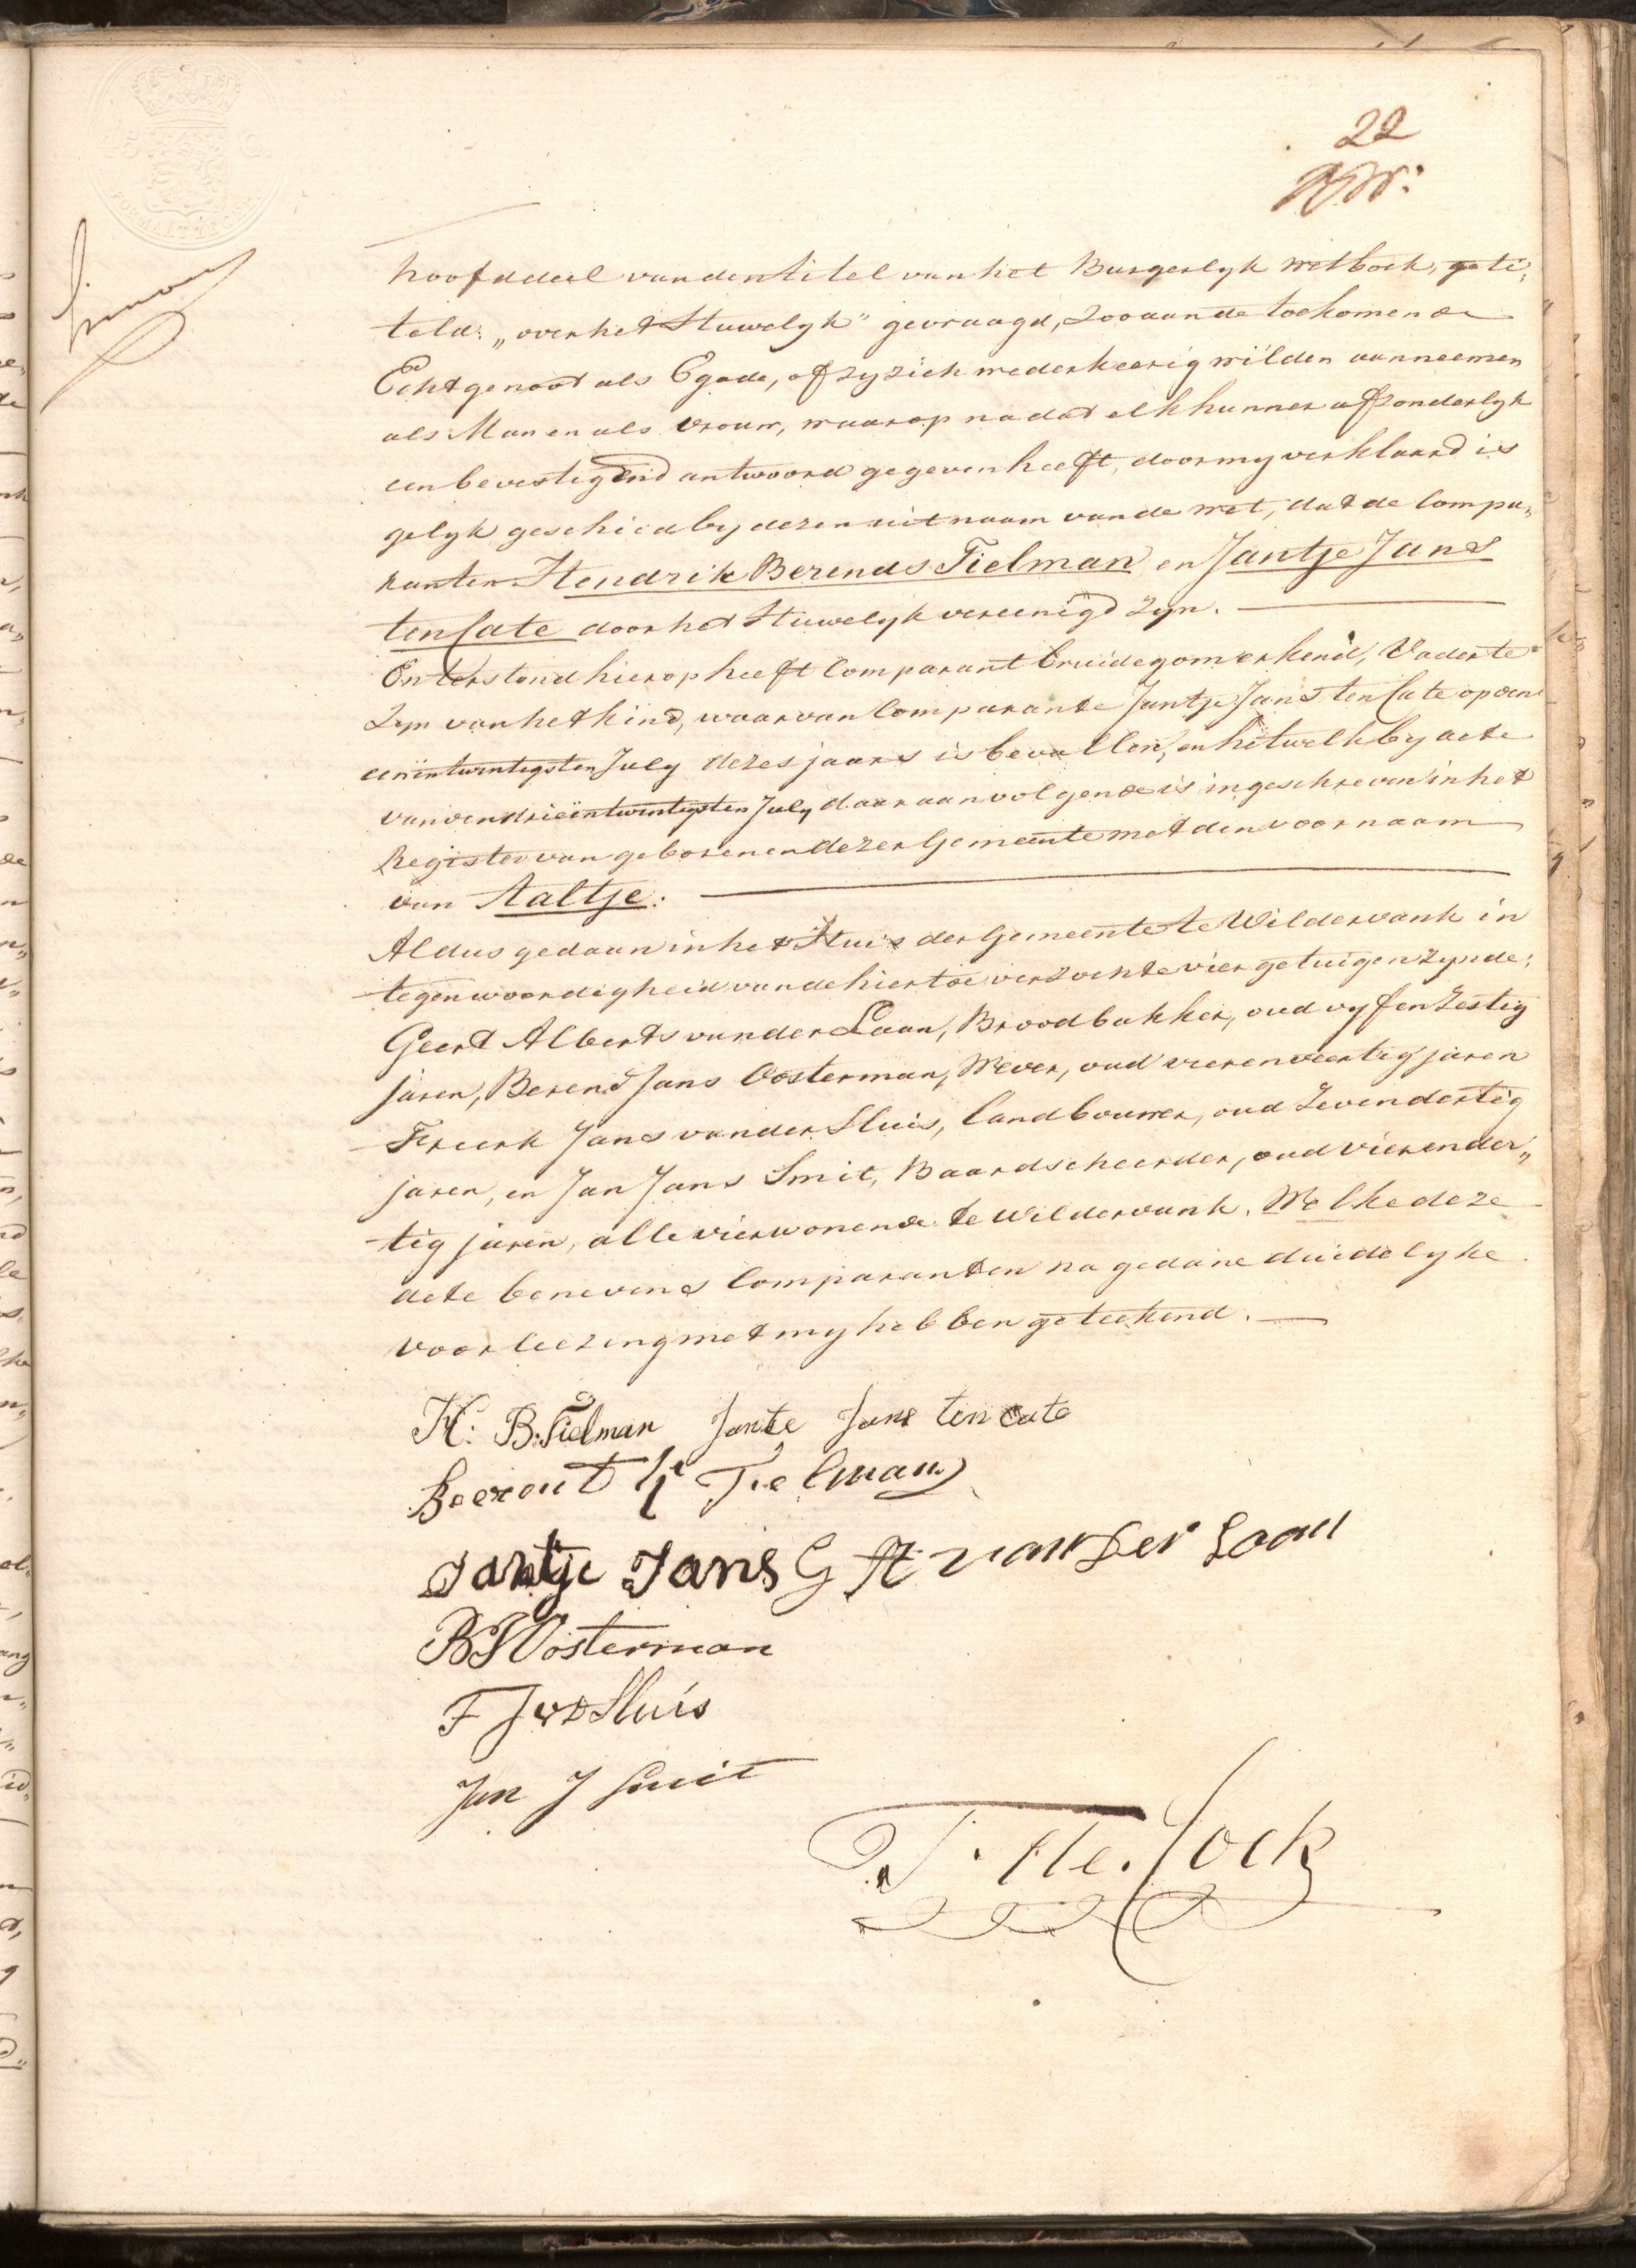 22
hoofddeel van den titel van het Burgerlyk wetboek, geti,
teld: „over het Huwelyk" gevraagd, zoo aan de toekomende
Echtgenoot als Egade, of zy zich wederkeerig wilden aanneemen
als Man en als Vrouw, waarop nadat elk hunner afzonderlyk
een bevestigend antwoord gegeven heeft, door my verklaard is
gelyk geschied by dezen uit naam van de wet, dat de Compa,
ranten Hendrik Berends Tielman en Jantje Jans
ten Cate door het Huwelyk vereenigd zyn.
En terstond hierop heeft Comparant bruidegom erkend, Vader te
zyn van het kind, waarvan Comparante Jantje Jans ten Cate op den
eenentwintigsten July dezes jaars is bevallen, en hetwelk by acte
van den drieëntwintigsten July daaraanvolgende is ingeschreven in het
Register van geborenen dezer Gemeente met den voornaam
van Aaltje.
Aldus gedaan in het Huis der Gemeente te Wildervank in
tegenwoordigheid van de hiertoe verzochte vier getuigen zynde:
Geert Alberts van der Laan, Broodbakker, oud vyf en zestig
jaren, Berend Jans Oosterman, Wever, oud vierenveertig jaren
Freerk Jans van der Sluis, landbouwer, oud zevendertig
jaren, en Jan Jans Smit, Baardscheerder, oud vierender„
tig jaren, alle vier wonende te Wildervank. Welke deze
acte benevens Comparanten na gedane duidelyke
voorleezing met my hebben geteekend.
H: B. Tielman Jantje Jans ten Cate
Beerent H Tielman
Jantje Jans G A van der Laan
B J Oosterman
F J v d Sluis
Jan J Smit